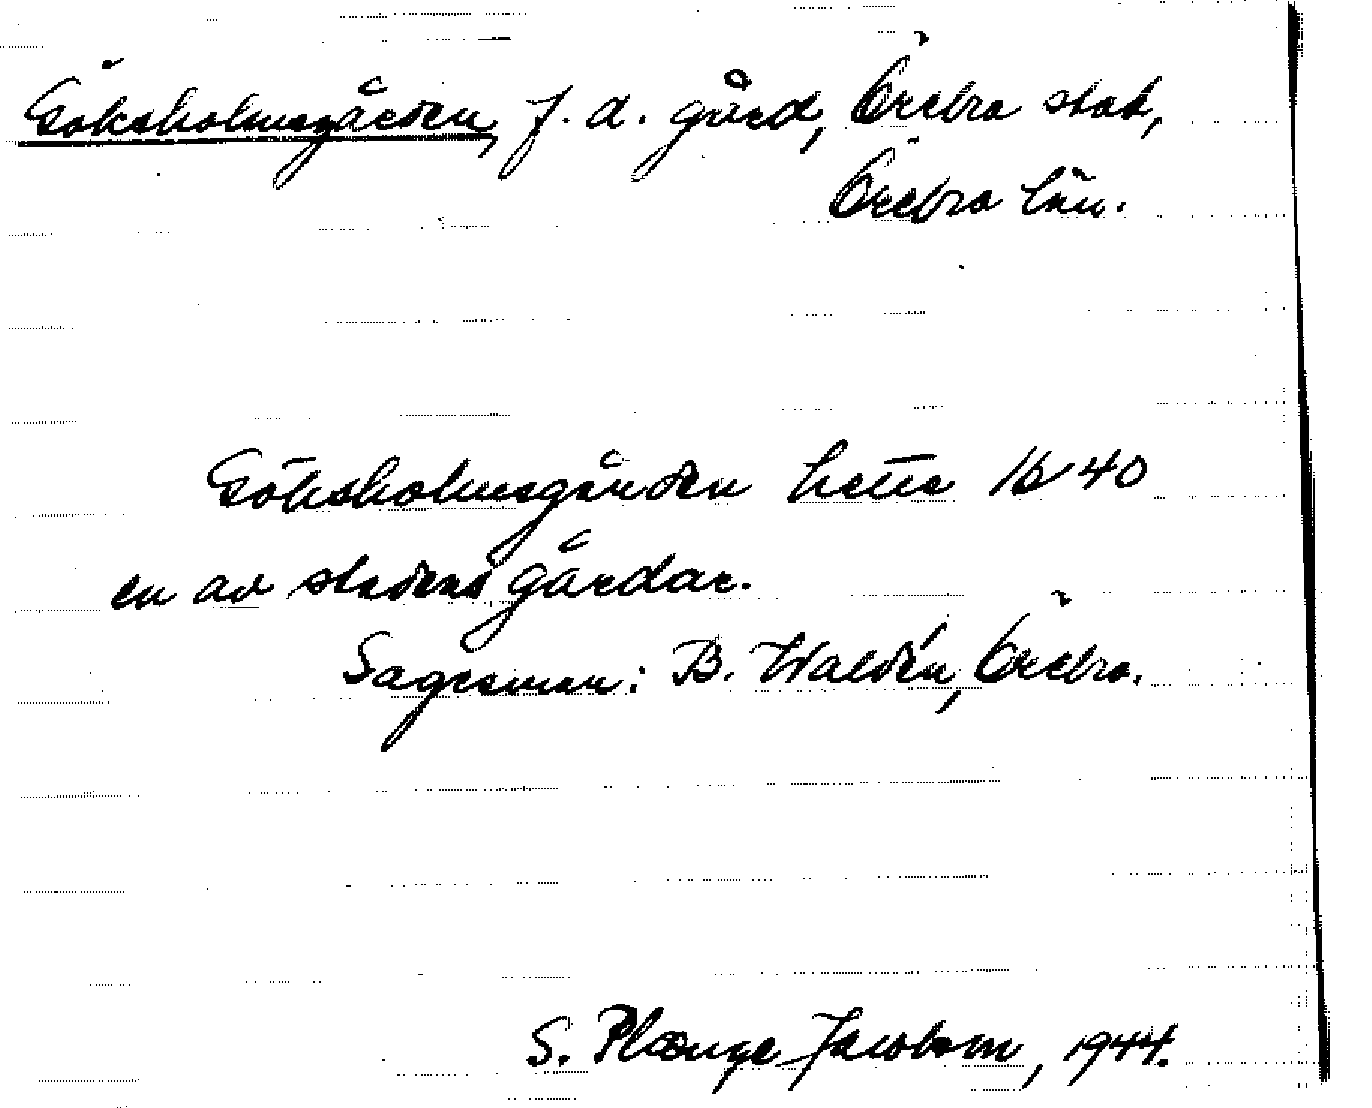 Göksholmsgården, f. d. gård, Örebro stad,
Örebro län.
Göksholmsgården hette 1640
en av stadens gårdar.
Sagesman: B. Waldén, Örebro.
S. Plænge Jacobson, 1944.